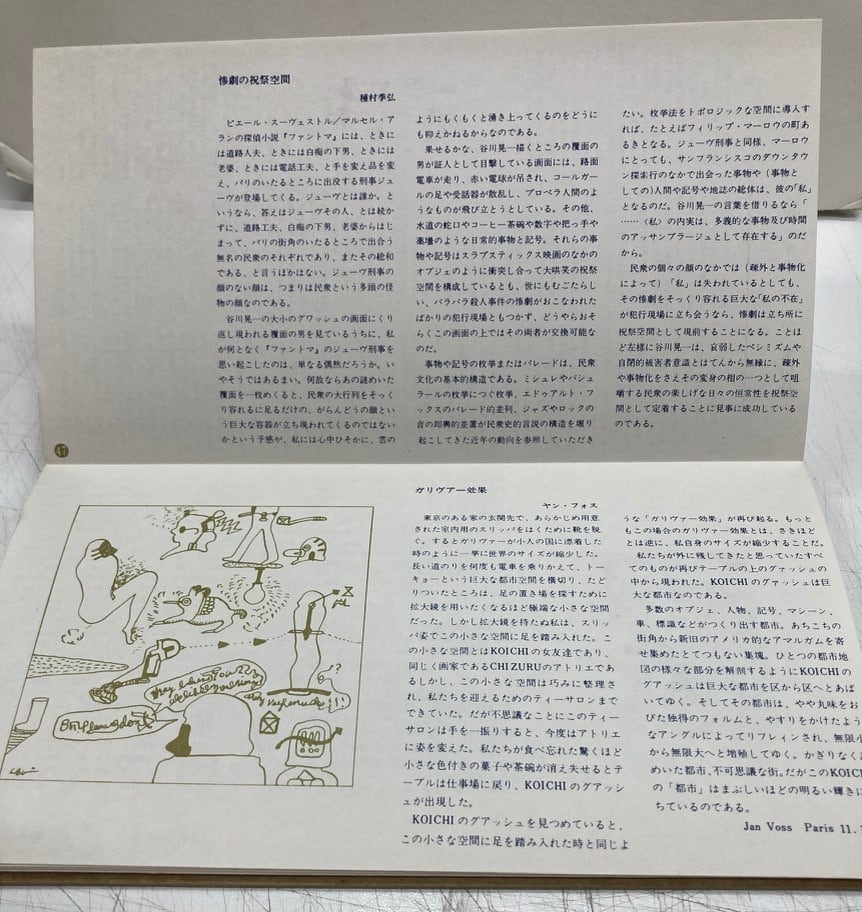 惨劇の祝祭空間
種村季弘
ピエール・スーヴェストル／マルセル・ア
ランの探偵小説『ファントマ』には、ときに
は道路人夫、ときには白痴の下男、ときには
老婆、ときには電話工夫、と手を変え品を変
え、パリのいたるところに出没する刑事ジュ
ーヴが登場してくる。ジューヴとは誰か。と
いうなら、答えはジューヴその人、とは続か
ずに、道路工夫、白痴の下男、老婆からはじ
まって、パリの街角のいたるところで出合う
無名の民衆のそれぞれであり、またその総和
である、と言うほかはない。ジューヴ刑事の
顔のない顔は、つまりは民衆という多頭の怪
物の顔なのである。
谷川晃一の大小のグワッシュの画面にくり
返し現われる覆面の男を見ているうちに、私
が何となく『ファントマ』のジューヴ刑事を
思い起こしたのは、単なる偶然だろうか。い
やそうではあるまい。何故ならあの謎めいた
覆面を一枚めくると、民衆の大行列をそっく
り容れるに足るだけの、がらんどうの顔とい
う巨大な容器が立ち現われてくるのではない
かという予感が、私には心中ひそかに、雲の
ようにもくもくと湧き上ってくるのをどうに
も抑えかねるからなのである。
果せるかな、谷川晃一描くところの覆面の
男が証人として目撃している画面には、路面
電車が走り、赤い電球が吊され、コールガー
ルの足や受話器が散乱し、プロペラ人間のよ
うなものが飛び立とうとしている。その他、
水道の蛇口やコーヒー茶碗や数字や把っ手や
藁壇のような日常的事物と記号。それらの事
物や記号はスラプスティックス映画のなかの
オブジェのように衝突し合って大哄笑の祝祭
空間を構成しているとも、世にもむごたらし
い、バラバラ殺人事件の惨劇がおこなわれた
ばかりの犯行現場ともつかず、どうやらおそ
らくこの画面の上ではその両者が交換可能な
のだ。
事物や記号の枚挙またはパレードは、民衆
文化の基本的構造である。ミシュレやバシュ
ラールの枚挙につぐ枚挙、エドゥアルト・フ
ックスのパレード的並列、ジャズやロックの
音の即興的並置が民衆史的言説の構造を堀り
起こしてきた近年の動向を参照していただき
たい。枚挙法をトポロジックな空間に導入す
れば、たとえばフィリップ・マーロウの町あ
るきとなる。ジューヴ刑事と同様、マーロウ
にとっても、サンフランシスコのダウンタウ
ン探索行のなかで出会った事物や（事物と
しての)人間や記号や地誌の総体は、彼の｢私｣
となるのだ。谷川晃一の言葉を借りるなら「
……〈私〉の内実は、多義的な事物及び時間
のアッサンブラージュとして存在する」のだ
から。
民衆の個々の顔のなかでは（疎外と事物化
によって）「私」は失われているとしても、
その惨劇をそっくり容れる巨大な｢私の不在｣
が犯行現場に立ち会うなら、惨劇は立ち所に
祝祭空間として現前することになる。ことほ
ど左様に谷川晃一は、哀弱したペシミズムや
自閉的被害者意識とはてんから無縁に、疎外
や事物化をさえその変身の相の一つとして咀
嚼する民衆の楽しげな日々の恒常性を祝祭空
間として定着することに見事に成功している
のである。
47
ガリヴァー効果
ヤン・フォス
東京のある家の玄関先で、あらかじめ用意
された室内用のスリッパをはくために靴を脱
ぐ。するとガリヴァーが小人の国に漂着した
時のように一挙に世界のサイズが縮少した。
長い道のりを何度も電車を乗りかえて、トー
キョーという巨大な都市空間を横切り、たど
りついたところは、足の置き場を探すために
拡大鏡を用いたくなるほど極端な小さい空間
だった。しかし拡大鏡を持たぬ私は、スリッ
パ姿でこの小さな空間に足を踏み入れた。こ
の小さな空間とはKOICHIの女友達であり、
同じく画家であるCHIZURUのアトリエであ
るしかし、この小さな空間は巧みに整理さ
れ、私たちを迎えるためのティーサロンまで
できていた。だが不思議なことにこのティー
サロンは手を一振りすると、今度はアトリエ
に姿を変えた。私たちが食べ忘れた驚くほど
小さな色付きの菓子や茶碗が消え失せるとテ
ーブルは仕事場に戻り、KOICHIのグアッシ
ュが出現した。
KOICHIのグアッシュを見つめていると、
この小さな空間に足を踏み入れた時と同じよ
うな「ガリヴァー効果」が再び起る。もっと
もこの場合のガリヴァー効果とは、さきほど
とは逆に、私自身のサイズが縮少することだ。
私たちが外に残してきたと思っていたすべ
てのものが再びテーブルの上のグァッシュの
中から現われた。KOICHIのグァッシュは巨
大な都市なのである。
多数のオブジェ、人物、記号、マシーン、
車、標識などがつくり出す都市。あちこちの
街角から新旧のアメリカ的なアマルガムを寄
せ集めたとてつもない集塊。ひとつの都市地
図の様々な部分を解剖するようにKOICHIの
グアッシュは巨大な都市を区から区へとあば
いてゆく。そしてその都市は、やや丸味をお
びた独得のフォルムと、やすりをかけたよう
なアングルによってリフレインされ、無限小
から無限大へと増殖してゆく。かぎりなく
めいた都市、不可思議な街。だがこのKOICHI
の「都市」はまぶしいほどの明るい輝きに
ちているのである。
Jan Voss Paris 11.
May I have your
very much
Oh! Please don't